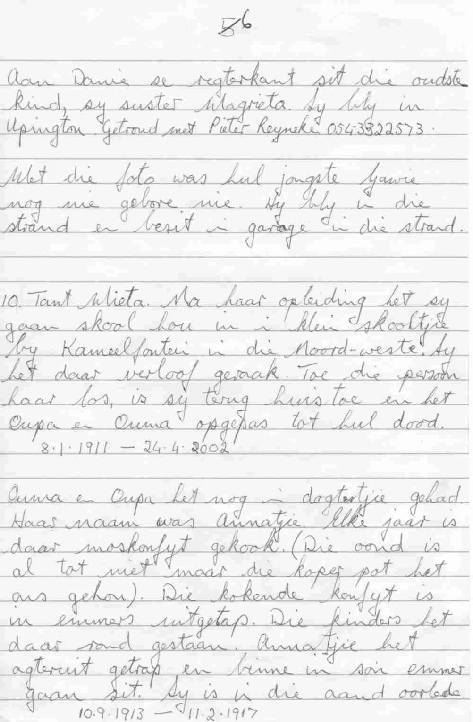 6
Aan Danie se regterkant sit die oudste
kind, sy suster Magrieta. Sy bly in
Upington. Getroud met Pieter Reyneke 0543322573.
Met die foto was hul jongste Gawie
nog nie gebore nie. Hy bly in die
strand en besit 'n garage in die strand.
10. Tant Mieta. Na haar opleiding het sy
gaan skool hou in 'n klein skooltjie
by Kameelfontein in die Noord-weste. Sy
het daar verloof geraak. Toe die persoon
haar los, is sy terug huis toe en het
Oupa en Ouma opgepas tot hul dood.
8.1.1911 – 24.4.2002
Ouma en Oupa het nog 'n dogtertjie gehad.
Haar naam was Annatjie. Elke jaar is
daar moskonfyt gekook. (Die oond is
al tot niet maar die koper pot het
ons gehou). Die kokende konfyt is
in emmers uitgetap. Die kinders het
daar rond gestaan. Annatjie het
agteruit getrap en binne in so'n emmer
gaan sit. Sy is in die aand oorlede
10.9.1913 – 11.2.1917